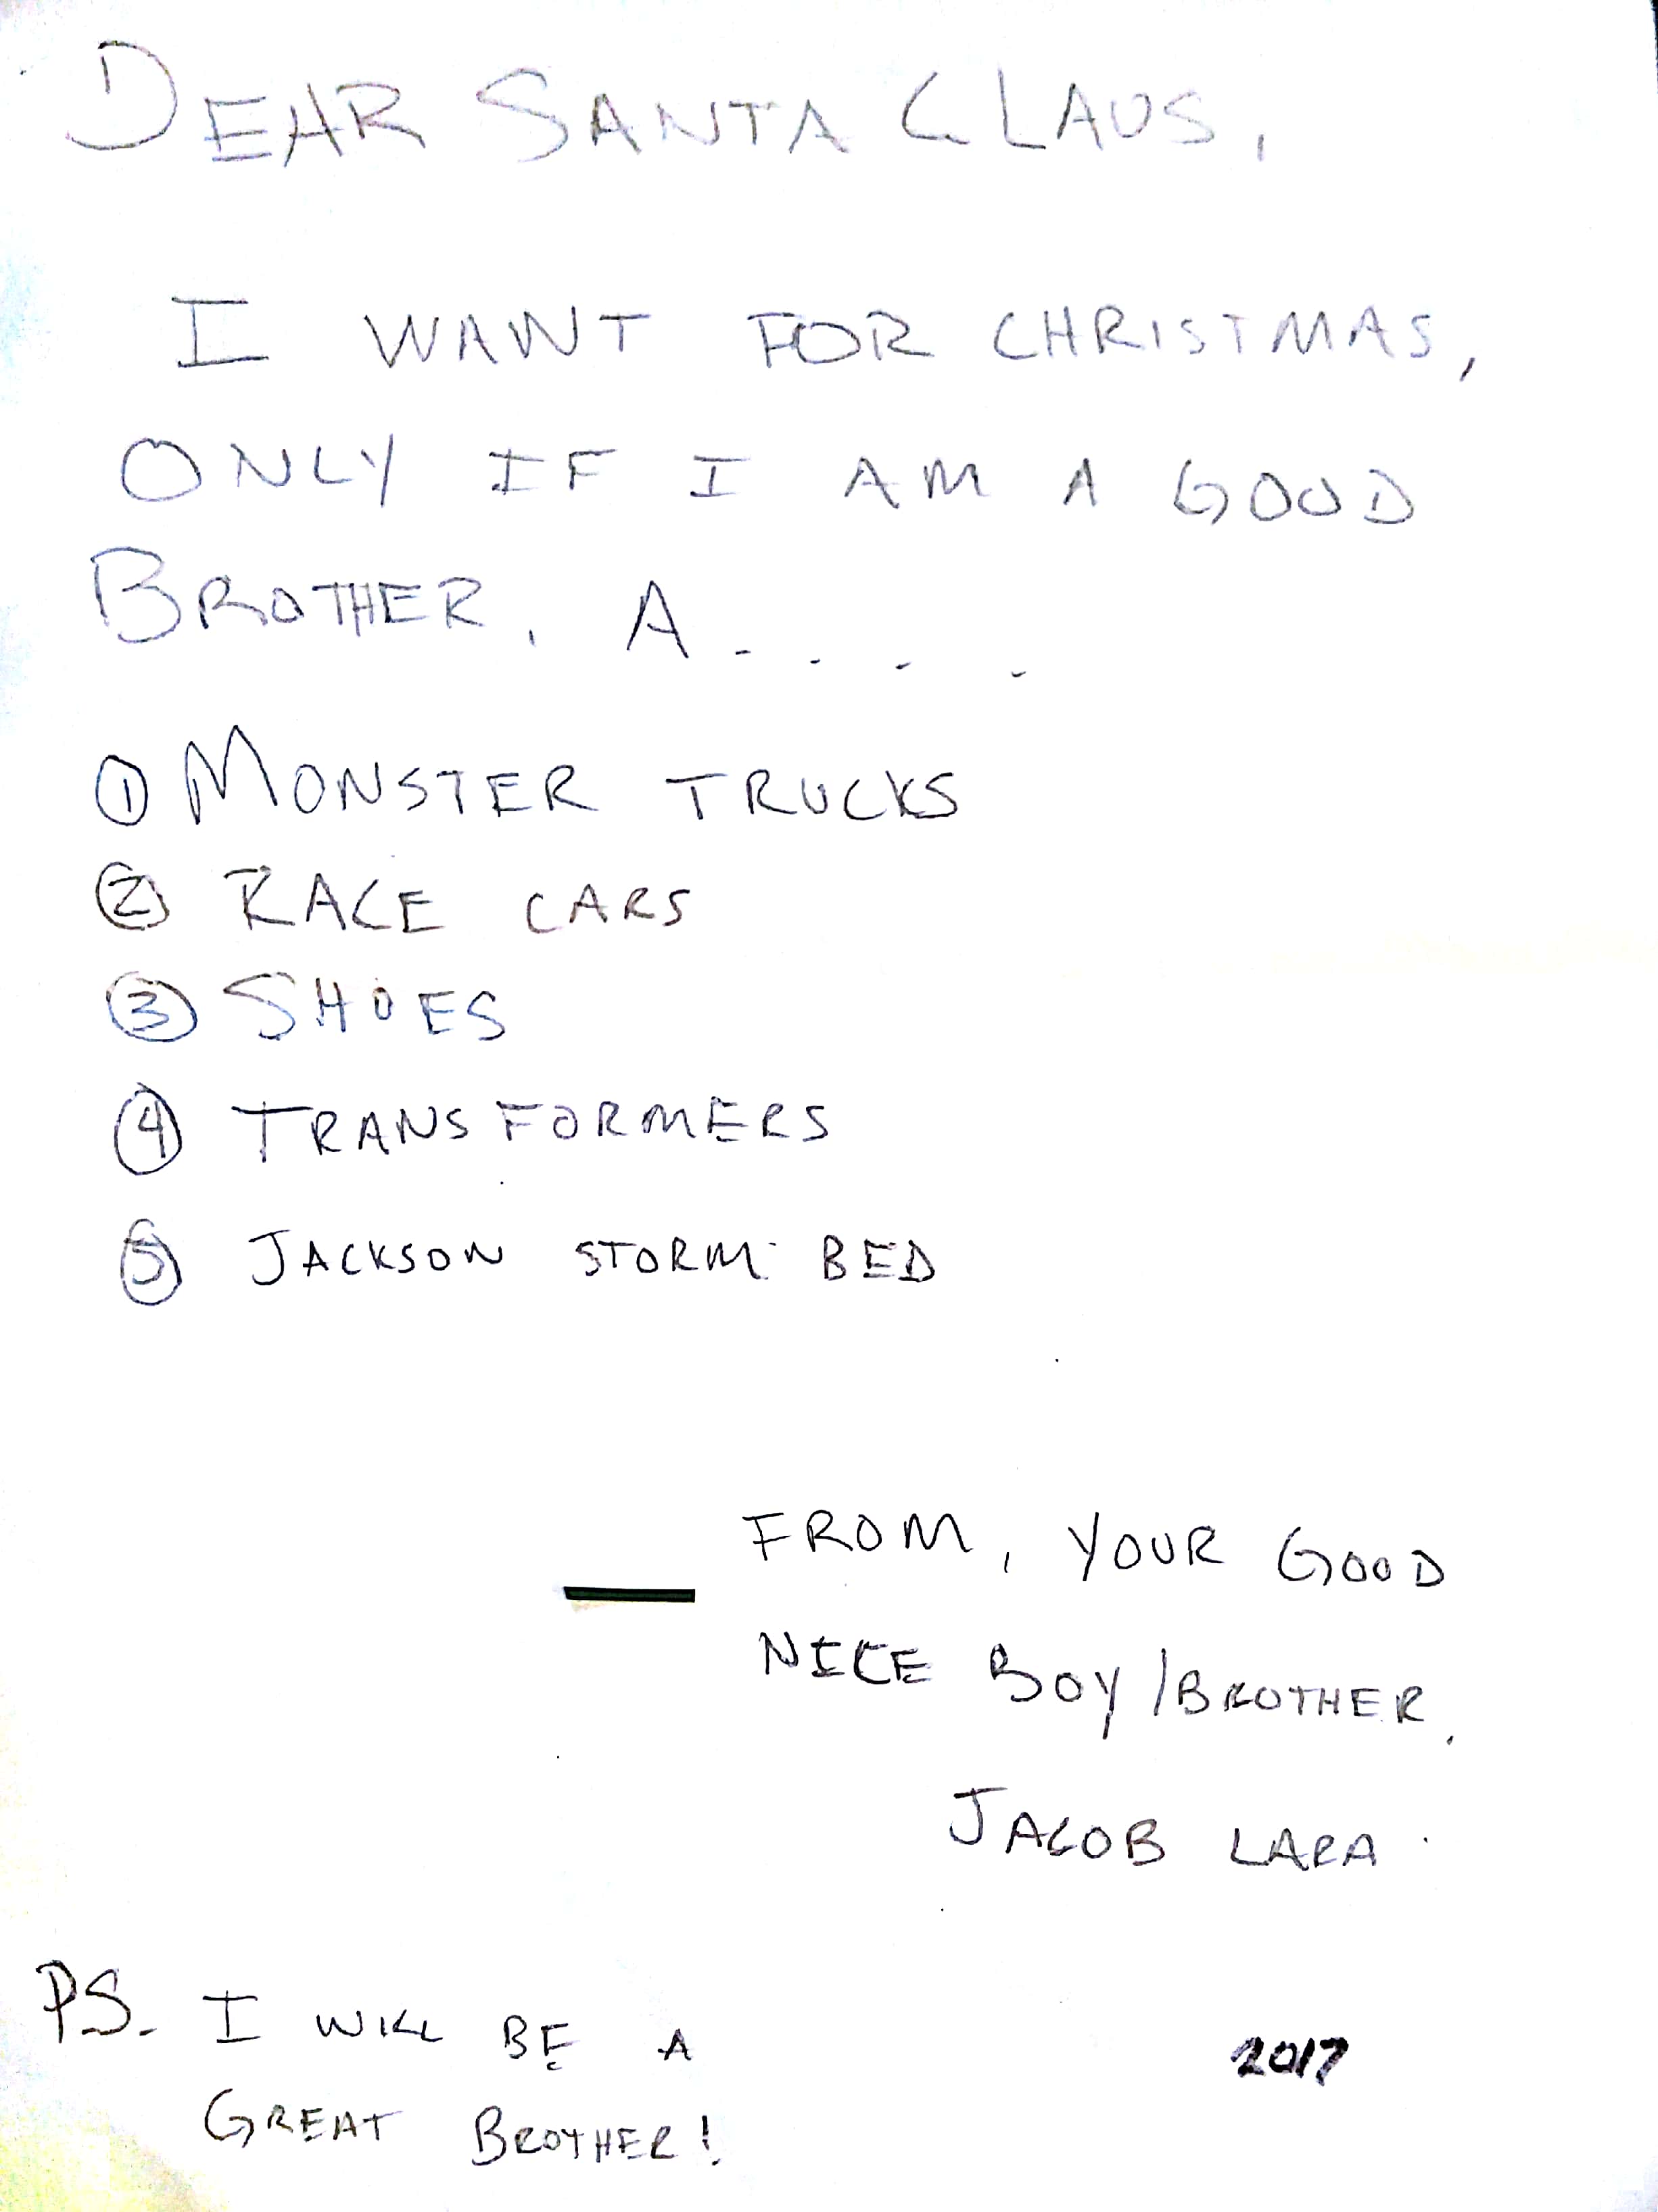 DEAR SANTA CLAUS,
I WANT FOR CHRISTMAS,
ONLY IF I AM A GOOD
BROTHER, A....
① MONSTER TRUCKS
② RACE CARS
③ SHOES
④ TRANSFORMERS
⑤ JACKSON STORM BED
FROM, YOUR GOOD
NICE BOY/BROTHER,
JACOB LARA
PS. I WILL BE A
GREAT BROTHER!
2017